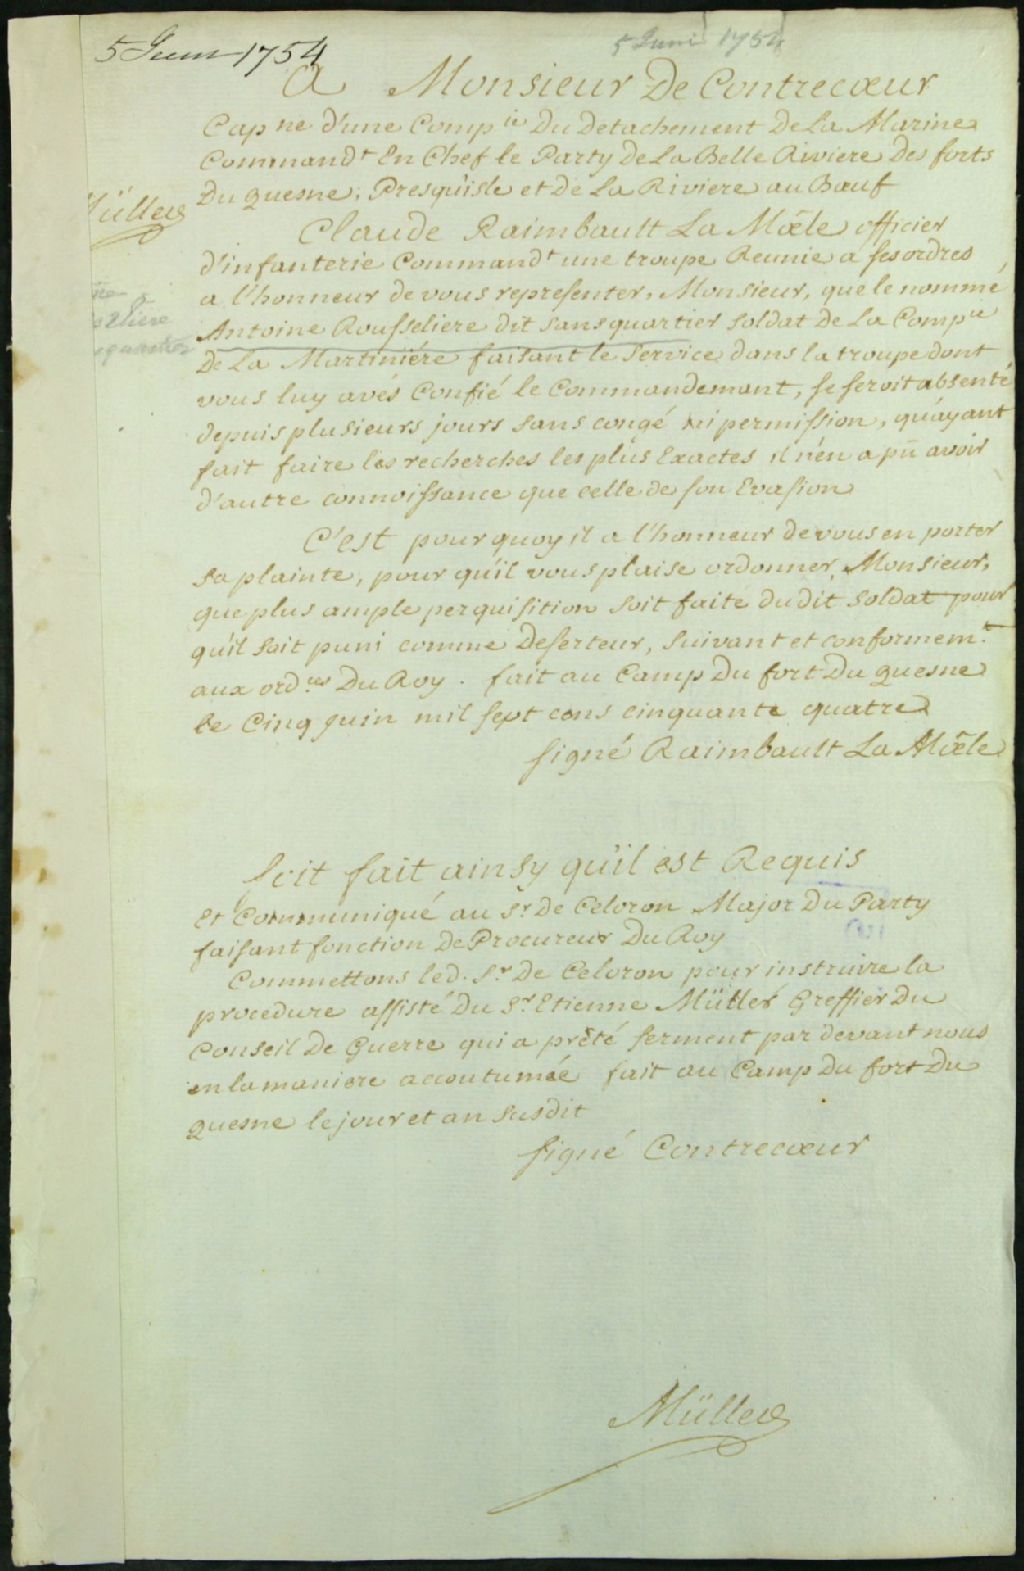 5 Juin 1754
5 Juin 1754
A Monsieur De Contrecœur
Capne d'une Compie Du Detachement De La Marine
Commandt En Chef le Party De La Belle Riviere Des forts
Du quesne, Presqu'isle et de La Riviere au Bœuf
Müller
Claude Raimbault La Mœle officier
d'infanterie Commandt une troupe Reunie a ses ordres,
a l'honneur de vous representer, Monsieur, que le nommé
Antoine Rousseliere dit sansquartier soldat de La Compie
De La Martiniére faisant le service dans la troupe dont
vous luy avés Confié le Commandemant, se seroit absenté
depuis plusieurs jours sans congé ni permission, qu'ayant
fait faire les recherches les plus Exactes il n'en a pû avoir
d'autre connoissance que celle de son Evasion
C'est pourquoy il a l'honneur de vous en porter
sa plainte, pour qu'il vous plaise ordonner, Monsieur,
que plus ample perquisition soit faite dudit soldat pour
qu'il soit puni comme Deserteur, suivant et conformemt
aux ordces Du Roy. fait au Camp Du fort Du quesne
le Cinq juin mil sept cens cinquante quatre
signé Raimbault La Mœle
Soit fait ainsy qu'il est Requis
et Communiqué au Sr de Celoron Major Du Party
faisant fonction De Procureur Du Roy
Commettons led. Sr De Celoron pour instruire la
procedure assisté Du Sr Etienne Müller Greffier Du
Conseil De Guerre qui a prêté serment par devant nous
en la maniere accoutumée fait au Camp Du fort Du
quesne le jour et an susdit
signé Contrecœur
Müller